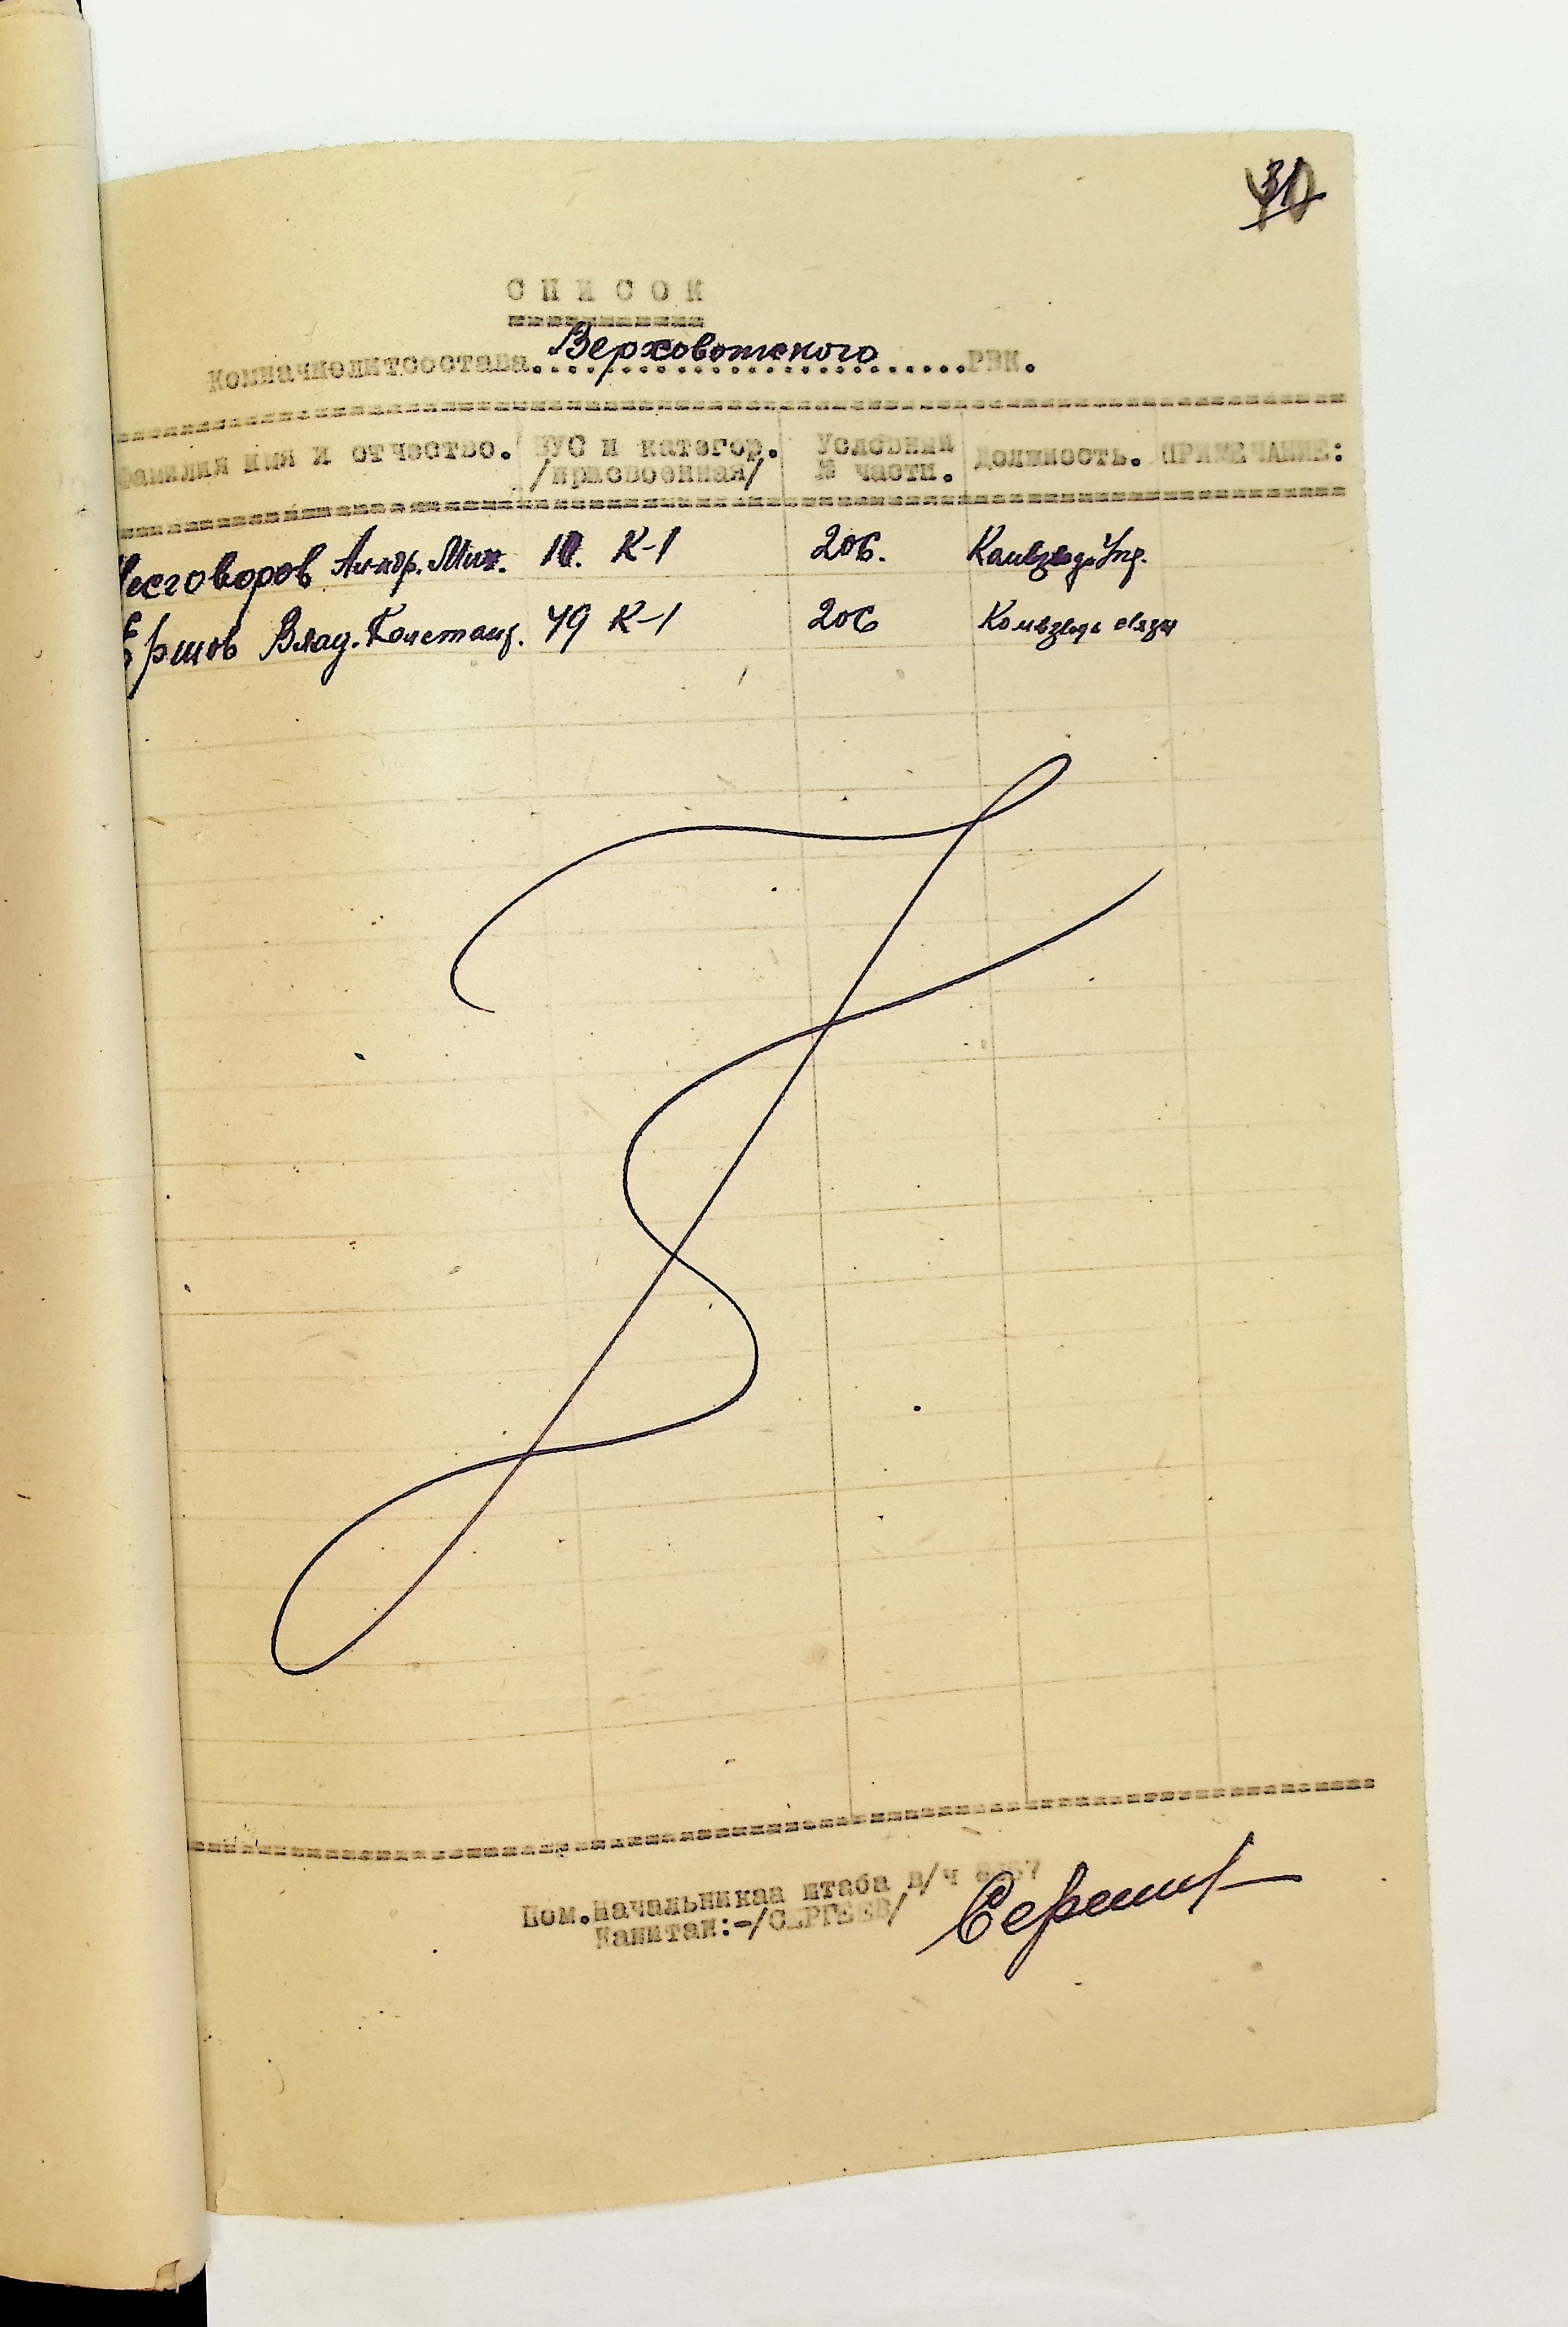 СПИСОК
Комначполитсостава Верховотского РВК.
Фамилия имя и отчество. ВУС и категор. Условний должность. ПРИМЕЧАНИЕ:
/присвоенная/ № части.
Несговоров Алмдр. Мих. 10. К-1 206. Комвзвода Упр.
Ершов Влад. Констант. 49 К-1 206 Комвзвода связи
Пом.Начальникаа штаба в/ч
Капитан:-/СЕРГЕЕВ/